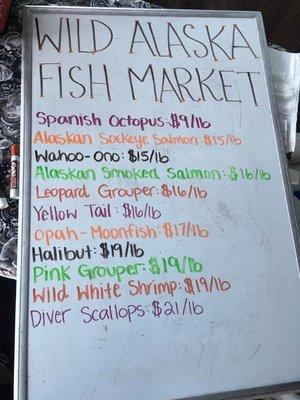 WILD ALASKA
FISH MARKET
Spanish Octopus: $9/lb
Alaskan Sockeye Salmon: $15/lb
Wahoo-Ono: $15/lb
Alaskan Smoked Salmon: $16/lb
Leopard Grouper: $16/lb
Yellow Tail: $16/lb
Opah-Moonfish: $17/lb
Halibut: $19/lb
Pink Grouper: $19/lb
Wild White Shrimp: $19/lb
Diver Scallops: $21/lb